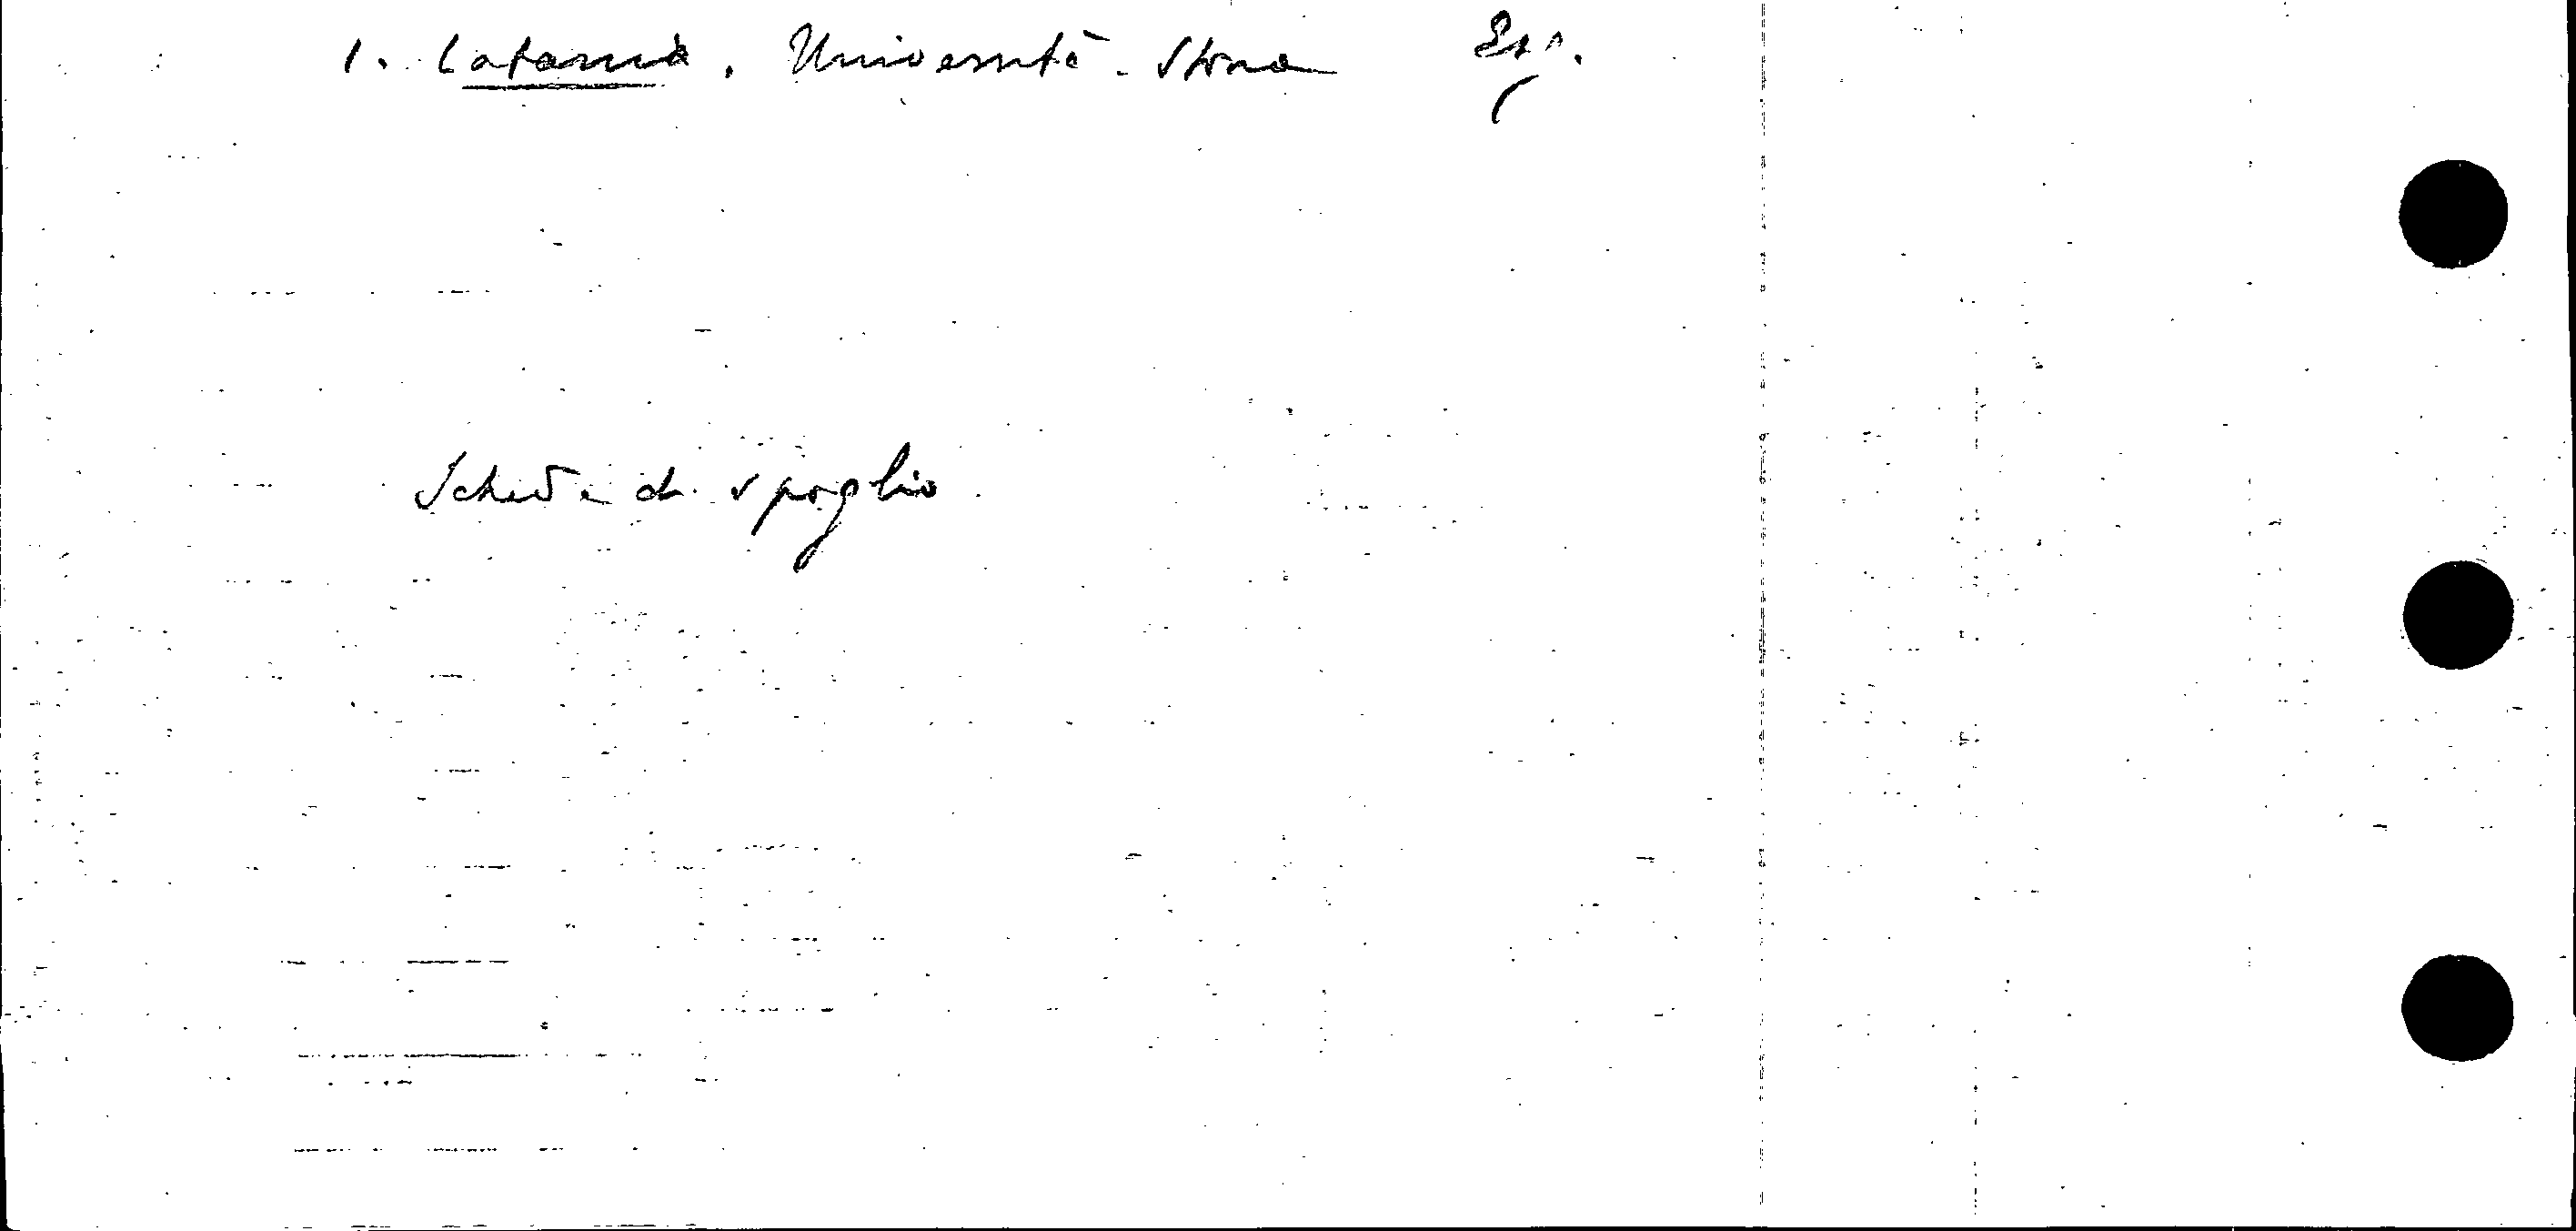 1. Catania. Università - Storia
Schede di spoglio